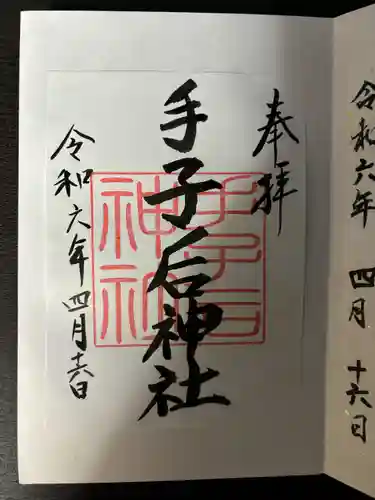 令和六年 四月 十六日
奉拝
手子后神社
手子后
神社
令和六年四月十六日